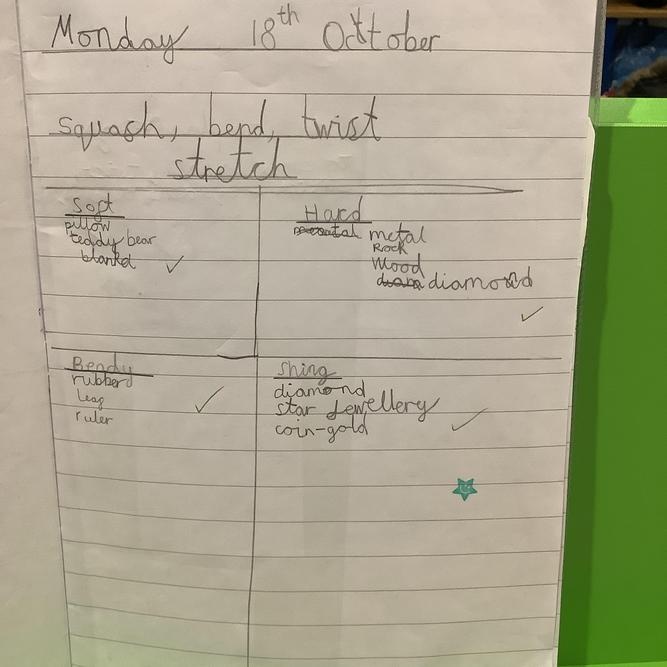 Monday 18th October
squash, bend, twist
stretch
Soft
pillow
teddy bear
blanked
Hard
metal
Rock
Wood
diamond
Bendy
rubberd
Leag
ruler
Shing
diamond
star Jewellery
coin-gold